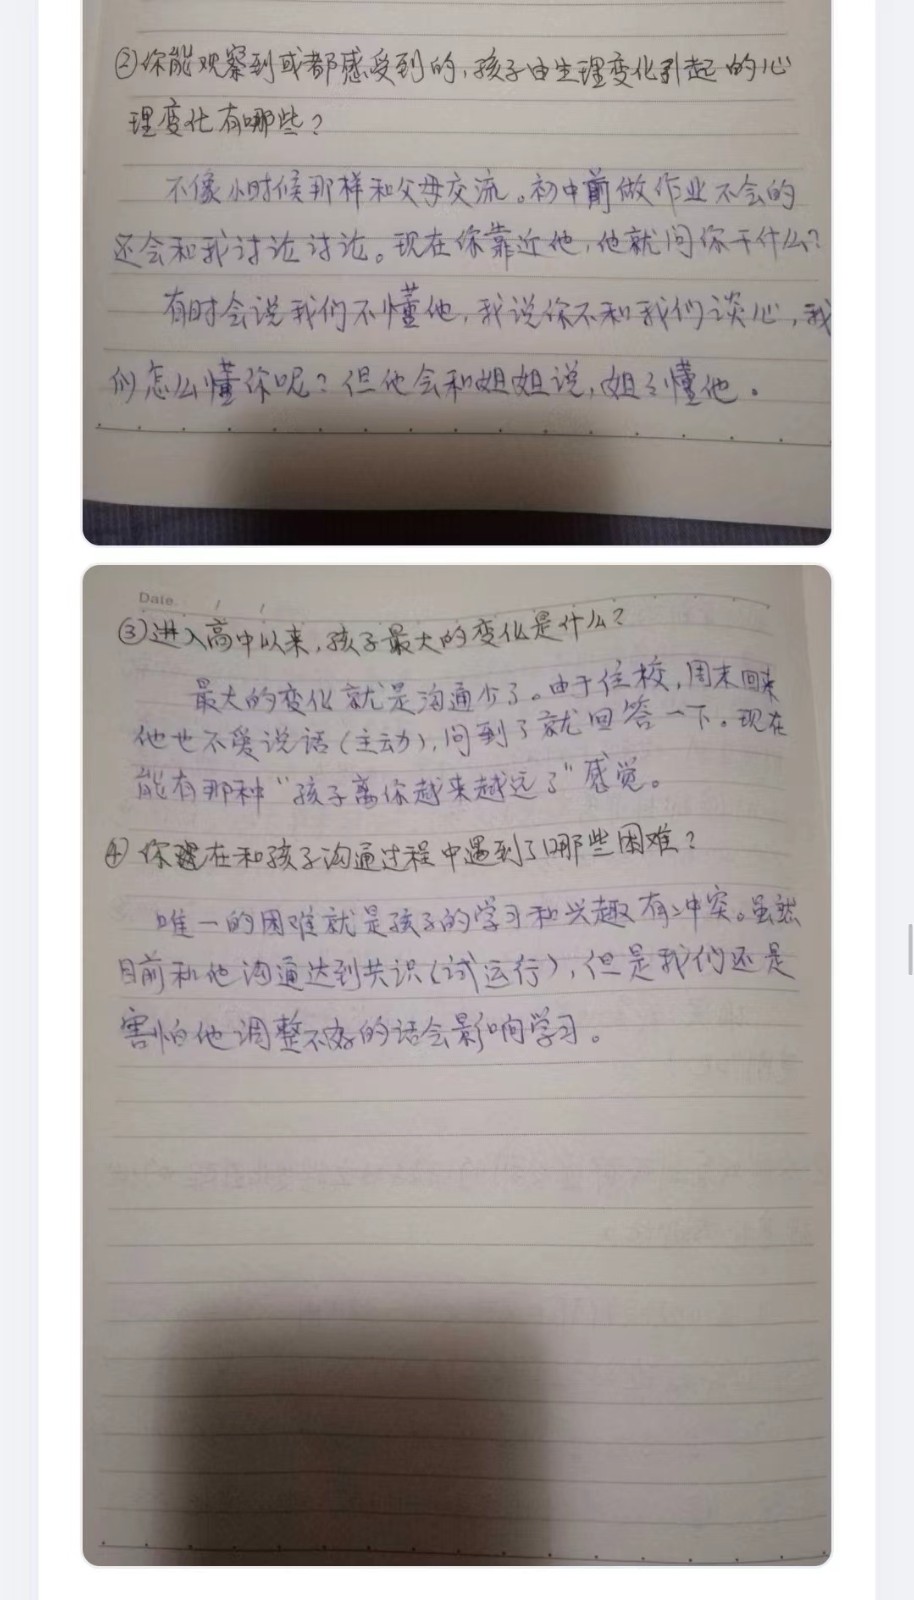 ②你能观察到或都感受到的,孩子由生理变化引起的心
理变化有哪些?
不像小时候那样和父母交流。初中前做作业不会的
还会和我讨论讨论。现在你靠近他,他就问你干什么?
有时会说我们不懂他,我说你不和我们谈心,我
们怎么懂你呢?但他会和姐姐说,姐〻懂他。
Date / /
③进入高中以来,孩子最大的变化是什么?
最大的变化就是沟通少了。由于住校,周末回来
他也不爱说话(主动),问到了就回答一下。现在
能有那种“孩子离你越来越远了”感觉。
④你在和孩子沟通过程中遇到了哪些困难?
唯一的困难就是孩子的学习和兴趣有冲突。虽然
目前和他沟通达到共识(试运行),但是我们还是
害怕他调整不好的话会影响学习。